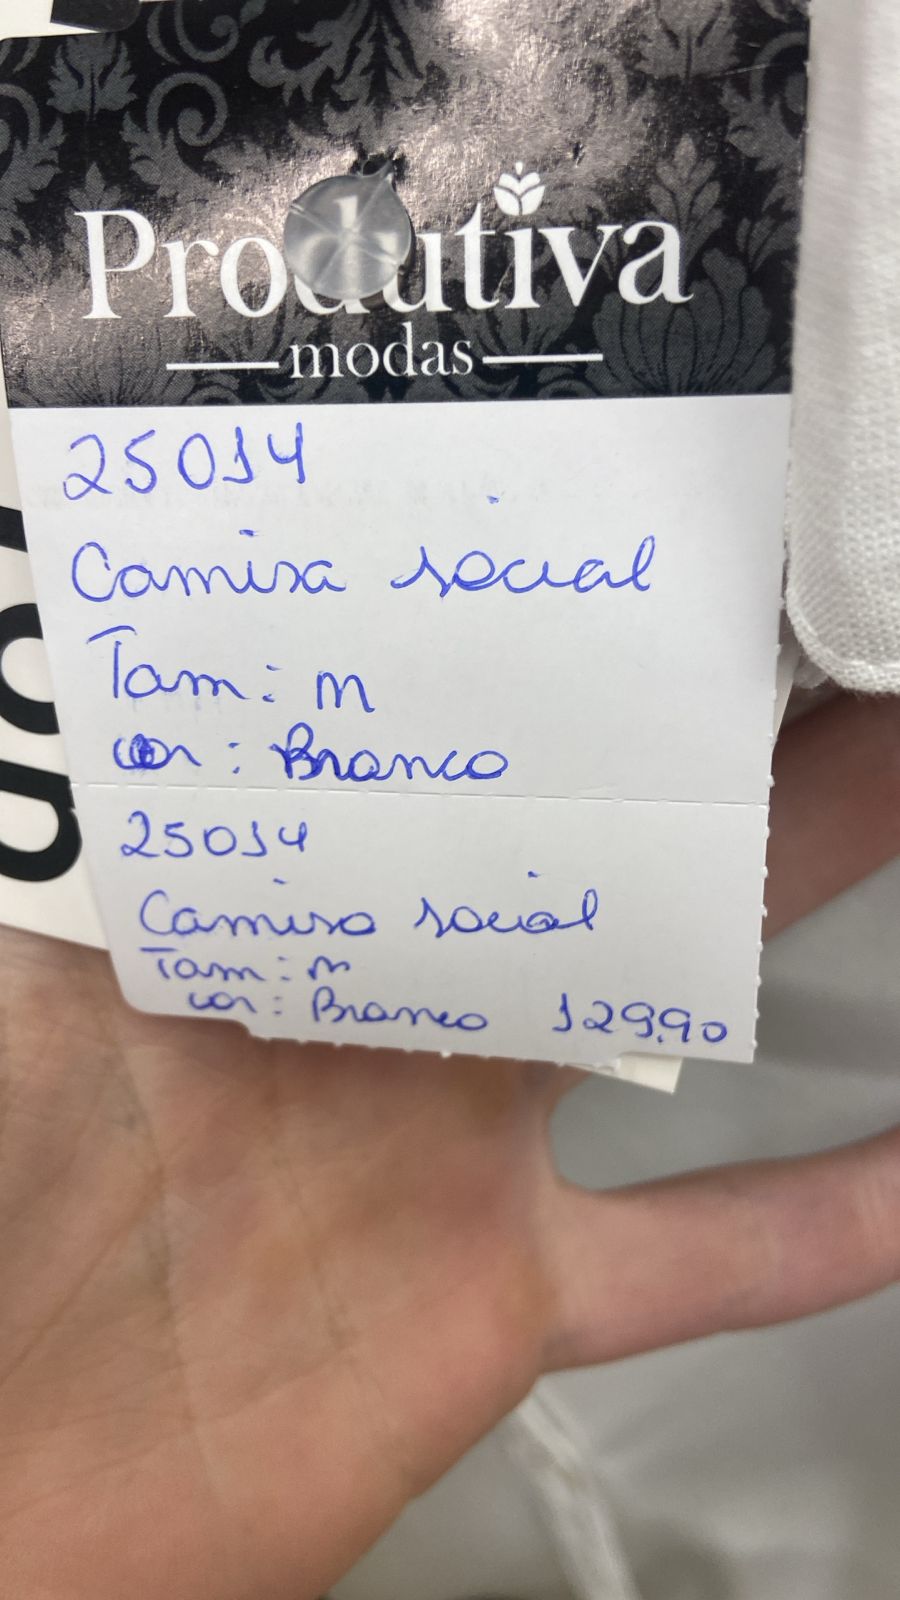 Produtiva
modas
25014
Camisa social
Tam: M
cor: Branco
25014
Camisa social
Tam: M
cor: Branco 129,90